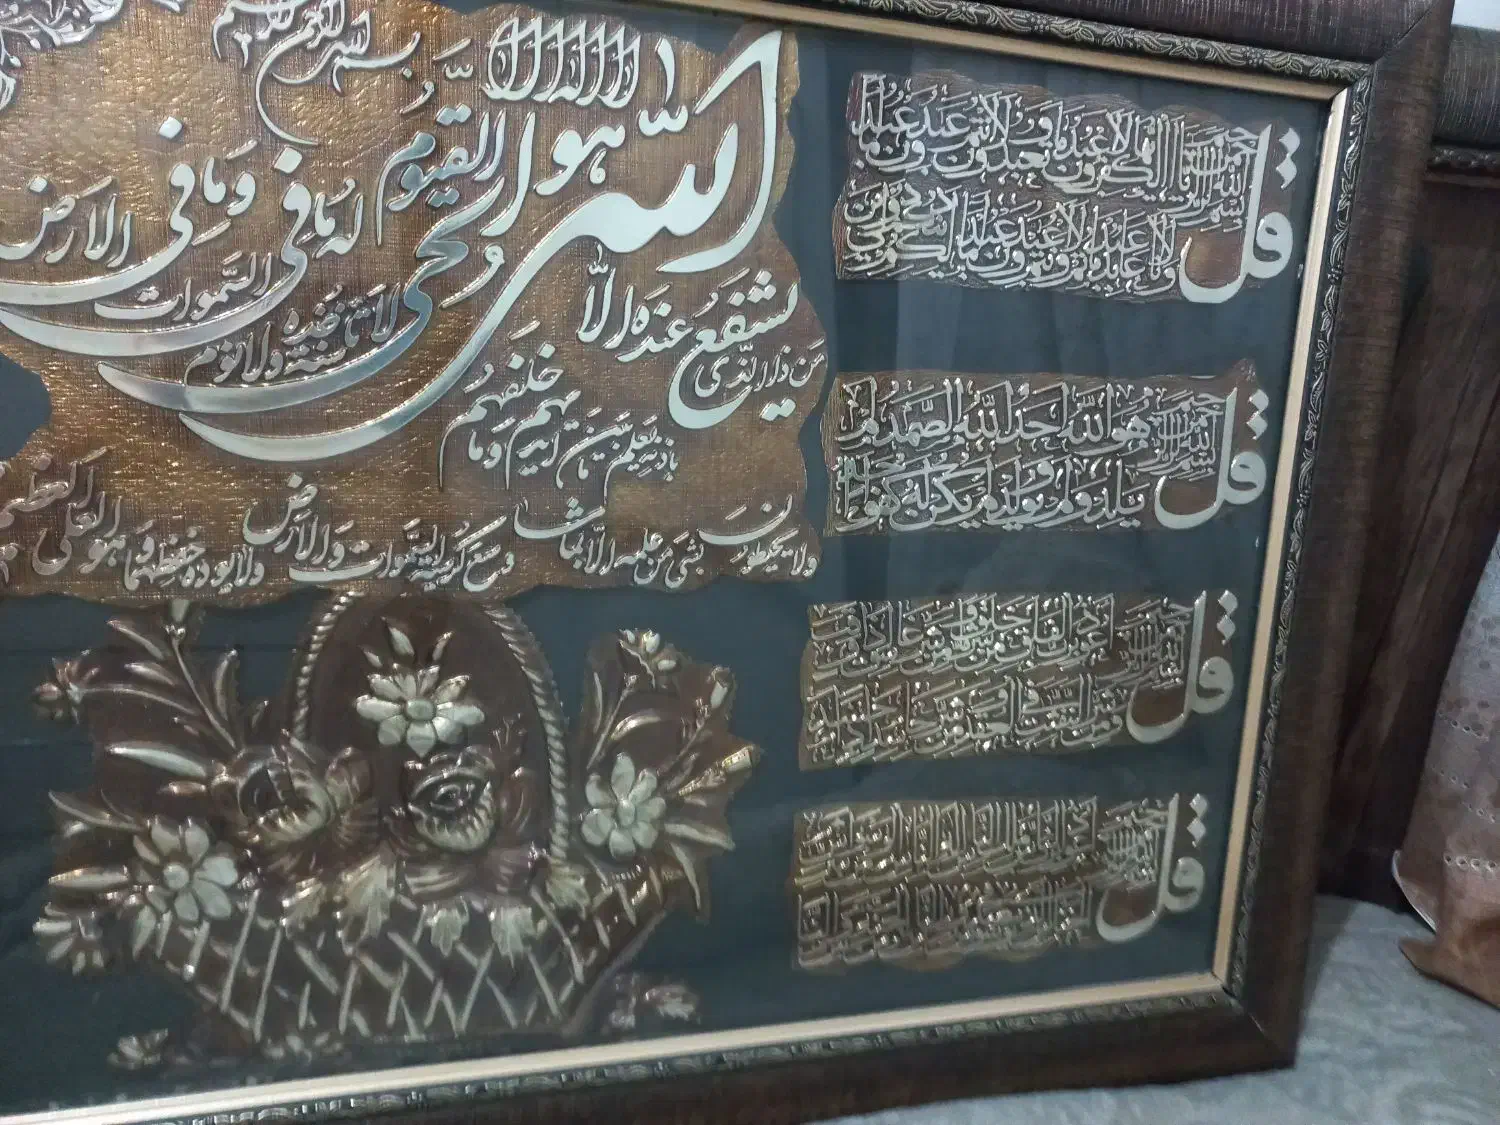 بسم الله الرحمن الرحيم
الله لا اله الا هو الحي القيوم
لا تاخذه سنة ولا نوم
له ما في السموات وما في الارض
من ذا الذي يشفع عنده الا
باذنه يعلم ما بين ايديهم وما خلفهم
ولا يحيطون بشيء من علمه الا بما شا
وسع كرسيه السموات والارض ولا يوده حفظهما وهو العلي العظيم
قل
بسم الله الرحمن الرحيم
يا ايها الكفرون لا اعبد ما تعبدون ولا انتم عبدون ما اعبد
ولا انا عابد ما عبدتم ولا انتم عبدون ما اعبد لكم دينكم ولي دين
قل
بسم الله الرحمن الرحيم
هو الله احد الله الصمد لم
يلد ولم يولد ولم يكن له كفوا احد
قل
بسم الله الرحمن الرحيم
اعوذ برب الفلق من شر ما خلق ومن شر غاسق اذا وقب
ومن شر النفثت في العقد ومن شر حاسد اذا حسد
قل
بسم الله الرحمن الرحيم